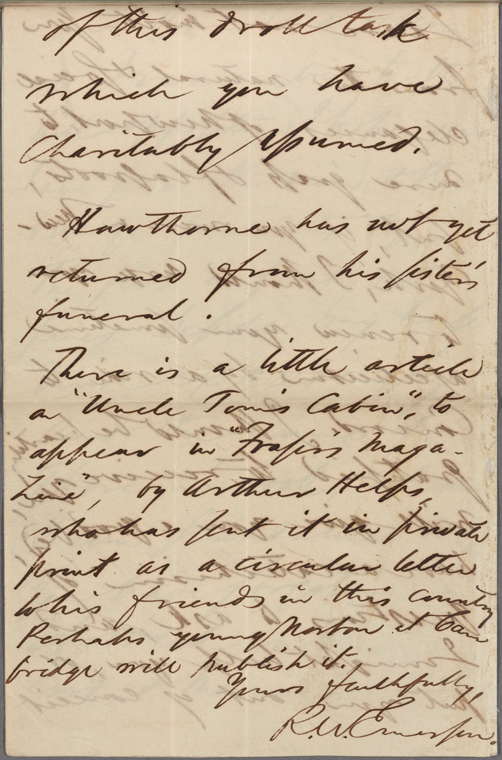 of this droll task
which you have
charitably assumed.
Hawthorne has not yet
returned from his sister's
funeral.
There is a little article
on "Uncle Tom's Cabin", to
appear in "Fraser's Maga-
zine", by Arthur Helps,
who has sent it in private
print as a circular letter
to his friends in this country
Perhaps young Norton at Cam
bridge will publish it.
Yours faithfully,
R.W. Emerson.